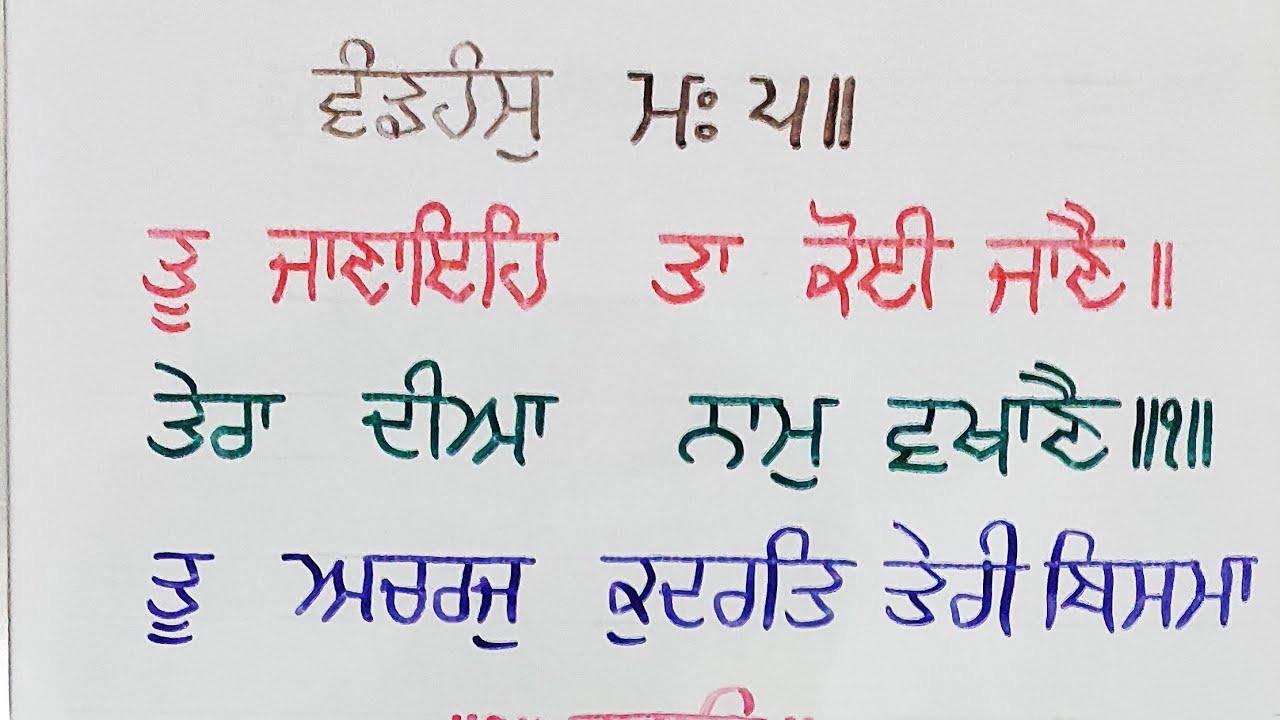 ਵੰਡਹੰਸੁ ਮਃ ੫॥
ਤੂ ਜਾਣਾਇਹਿ ਤਾ ਕੋਈ ਜਾਣੈ॥
ਤੇਰਾ ਦੀਆ ਨਾਮੁ ਵਖਾਣੈ॥੧॥
ਤੂ ਅਚਰਜੁ ਕੁਦਰਤਿ ਤੇਰੀ ਬਿਸਮਾ